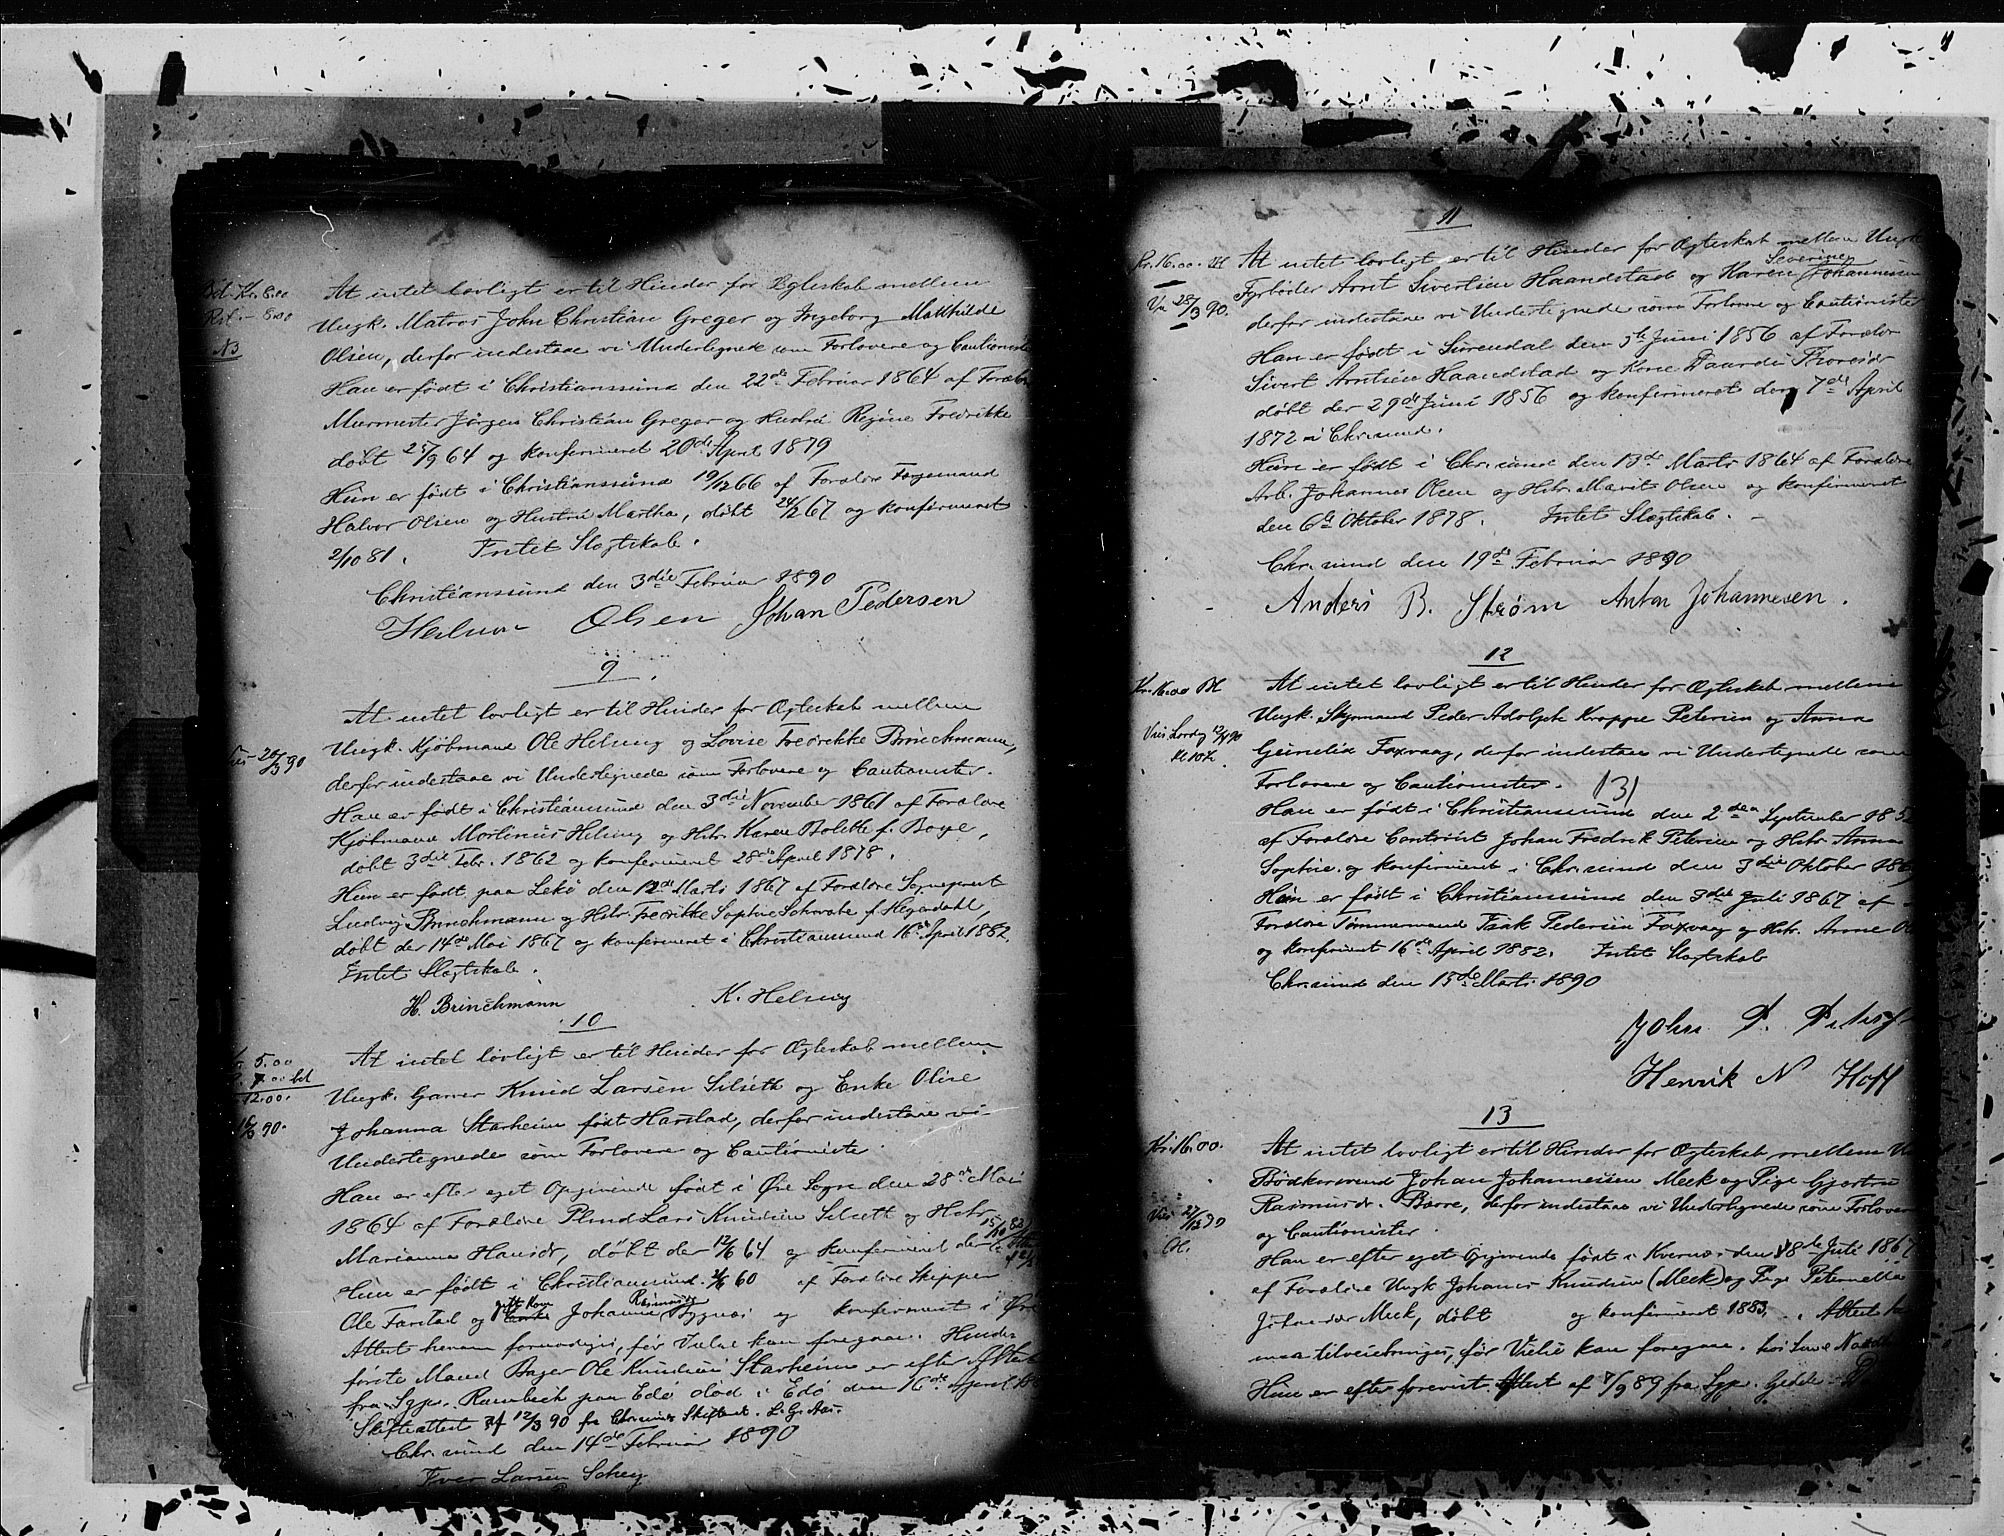 Bet. Kr. 8.00
At intet lovligt er til Hinder for Ægteskab mellem
Ungk. Matros John Christian Greger og Ingeborg Mathilde
Olsen, derfor indestaae vi Undertegnede som Forlovere og Cautionister
Han er født i Christianssund den 22de Februar 1864 af Forældre
Murmester Jörgen Christian Greger og Hustru Regine Fredrikke
døbt 25/3 64 og konfirmeret 20de April 1879
Hun er født i Christianssund 19/12 66 af Forældre
Halvor Olsen og Hustru Martha, døbt 24/2 67 og konfirmeret
2/10 81. Intet Slægtskab.
Christianssund den 3die Februar 1890
Halvor Olsen Johan Pedersen
9
Vies 20/3 90
At intet lovligt er til Hinder for Ægteskab mellem
Ungk. Kjøbmand Ole Helsing og Lovise Fredrikke Brinchmann,
derfor indestaae vi Undertegnede som Forlovere og Cautionister.
Han er født i Christianssund den 3die November 1861 af Forældre
Kjøbmand Mortinus Helsing og Hstr. Karen Bolette f. Boye,
døbt 3die Febr. 1862 og konfirmeret 28de April 1878.
Hun er født paa Lekö den 12de Marts 1867 af Forældre Sogneprest
Ludvig Brinchmann og Hstr. Fredrikke Sophie Schwabe f. Hegerdahl,
døbt den 14de Mai 1867 og konfirmeret i Christianssund 16de April 1882
Intet Slægtskab.
H. Brinchmann K. Helsing
10
5.00
7.00 bet
12.00.
At intet lovligt er til Hinder for Ægteskab mellem
Ungk. Garver Knud Larsen Silseth og Enke Oline
Johanna Starheim født Harstad, derfor indestaae vi
Undertegnede som Forlovere og Cautionister
Han er efter eget Opgivende født i Øre Sogn den 28de Mai
1864 af Forældre Lars Knudsen Silseth og Hstr.
Marianne Hansdr, døbt den 12/6 64 og konfirmeret den
Hun er født i Christianssund 60 af Forældre Skipper
Ole Farstad og Johanne Rasmusdr og konfirmeret i Øre
Attest herom fornødiges, før Vielse kan foregaae. Hendes
første Mand Bager Ole Knudsen Starheim er efter Attest
fra Sgpr. Rambech paa Edö død i Edö den 16de April
Skifteattest af 12/3 90 fra Chr.sunds Skifteret.
Chr.sund den 14de Februar 1890
Iver Larsen
11
Kr. 16.00
Vies 28/3 90.
At intet lovligt er til Hinder for Ægteskab mellem Ungk.
Severine
Fyrbøder Arnt Sivertsen Haandstad og Karen Johannesen
derfor indestaae vi Undertegnede som Forlovere og Cautionister
Han er født i Surendal den 5te Juni 1856 af Forældre
Sivert Arntsen Haandstad og Kone
døbt den 29de Juni 1856 og konfirmeret den 7de April
1872 i Chr.sund.
Hun er født i Chr.sund den 13de Marts 1864 af Forældre
Arb. Johannes Olsen og Hstr. Marit Olsen og konfirmeret
den 6te Oktober 1878. Intet Slægtskab.
Chr.sund den 19de Februar 1890
Anders B. Strøm Anton Johannesen.
12
Kr. 16.00
Vies Lørdag 12/4 90
At intet lovligt er til Hinder for Ægteskab mellem
Ungk. Styrmand Peder Adolph Kroppe Petersen og Anna
Foxvaag, derfor indestaae vi Undertegnede som
Forlovere og Cautionister.
Han er født i Christianssund den 2den September
af Forældre Johan Fredrik Petersen og Hstr. Anna
Sophie og konfirmeret i Chr.sund den 3die Oktober
Hun er født i Christianssund den 3die Juli 1867 af
Forældre Tømmermand Isak Pedersen Foxvaag og Hstr. Anne
og konfirmeret 16de April 1882. Intet Slægtskab
Chr.sund den 15de Marts 1890
John P. Peters
Henrik N Hoff
13
Kr. 16.00.
At intet lovligt er til Hinder for Ægteskab mellem
Bødkersvend Johan Johannesen Meek og Pige Gjertru
Rasmusdr. Barre, derfor indestaae vi Undertegnede som Forlovere
og Cautionister.
Han er efter eget Opgivende født i Kvernæs den 18de Juli 1867
af Forældre Ungk. Johannes Knudsen (Meek) og Pige Peternella
Meek, døbt og konfirmeret 1883. Attest
maa tilveiebringes, før Vielse kan foregaae.
Hun er efter forevist Attest af 7/9 89 fra Sgpr. Gjelde